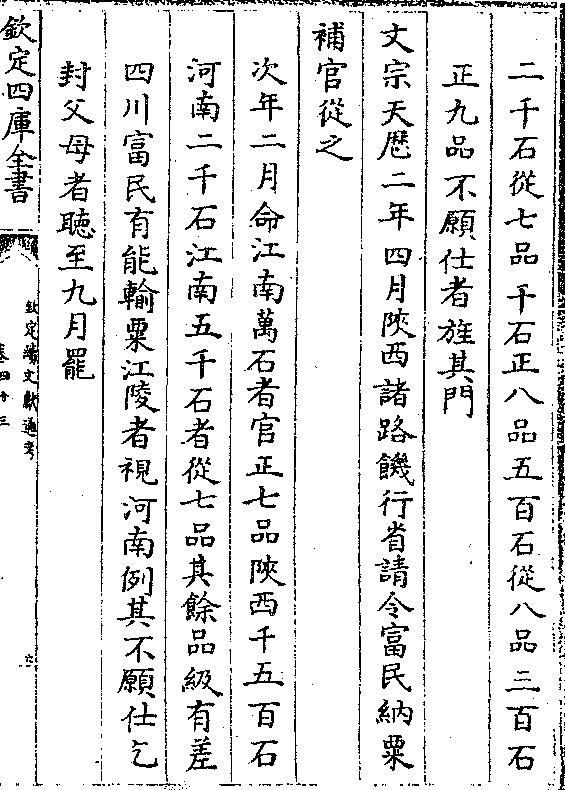 二千石從七品千石正八品五百石從八品三百石
正九品不願仕者旌其門
文宗天厯二年四月陜西諸路饑行省請令富民納粟
補官從之
次年二月命江南萬石者官正七品陜西千五百石
河南二千石江南五千石者從七品其餘品級有差
四川富民有能輸粟江陵者視河南例其不願仕乞
封父母者聴至九月罷
欽定四庫全書
欽定續文獻通考
卷四十三